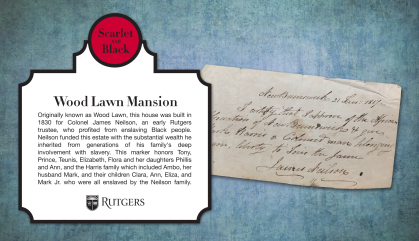 Scarlet
AND
Black
Wood Lawn Mansion
Originally known as Wood Lawn, this house was built in
1830 for Colonel James Neilson, an early Rutgers
trustee, who profited from enslaving Black people.
Neilson funded this estate with the substantial wealth he
inherited from generations of his family's deep
involvement with slavery. This marker honors Tony,
Prince, Teunis, Elizabeth, Flora and her daughters Phillis
and Ann, and the Harris family which included Ambo, her
husband Mark, and their children Clara, Ann, Eliza, and
Mark Jr. who were all enslaved by the Neilson family.
RUTGERS
New Brunswick 21
I certify that I approve of the
of New Brunswick
Harris a Colored man
liberty to
James Neilson